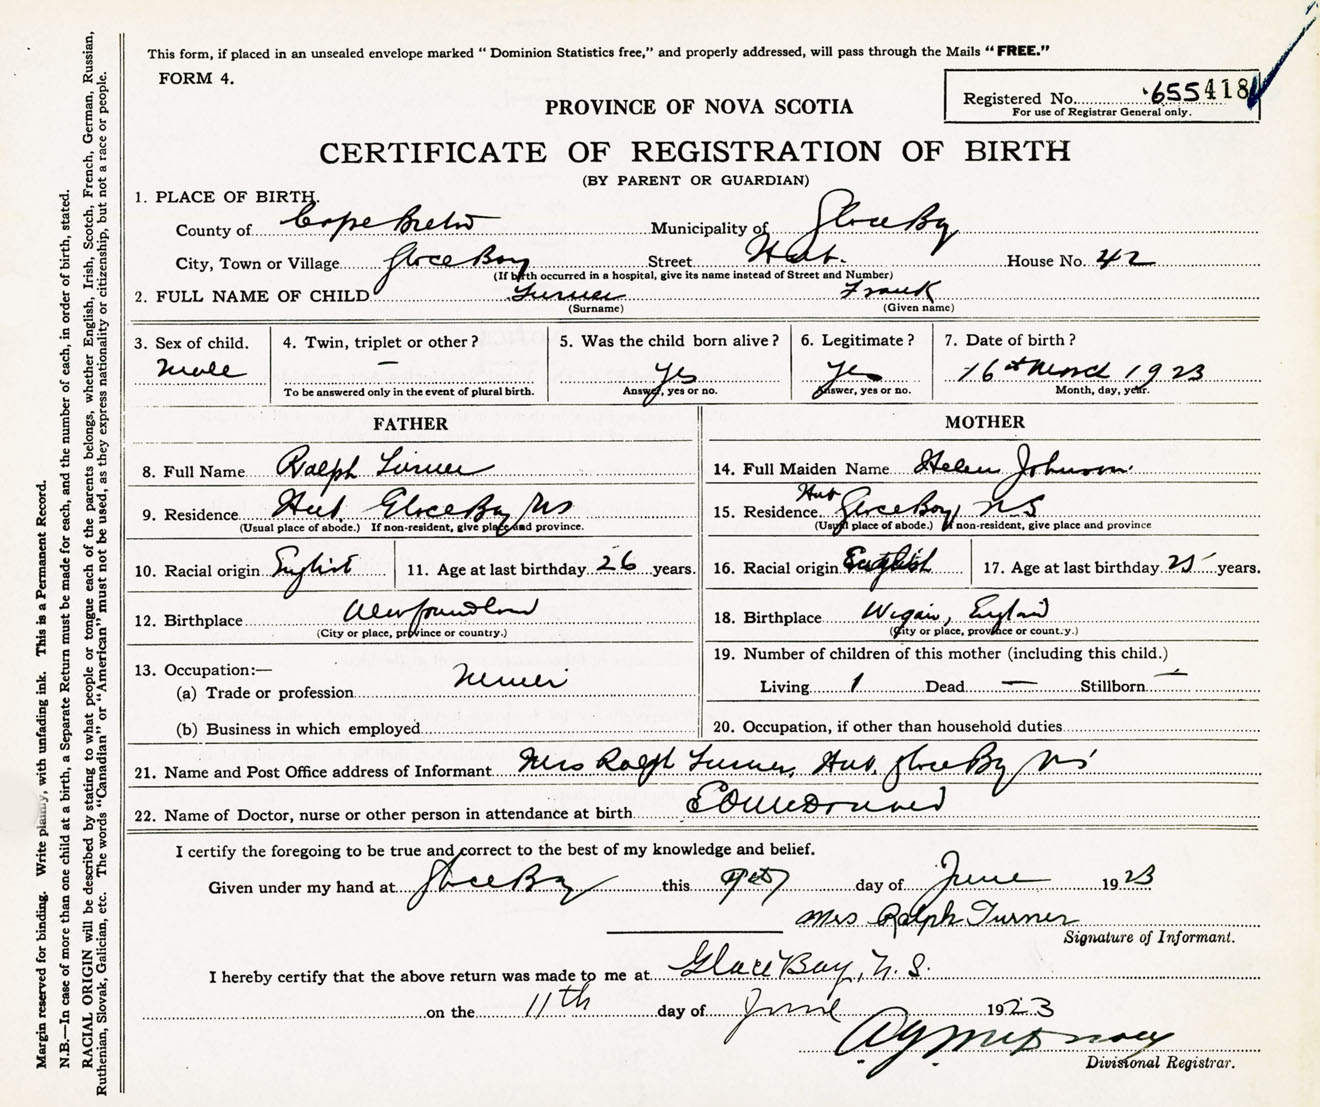 This form, if placed in an unsealed envelope marked “ Dominion Statistics free,” and properly addressed, will pass through the Mails “FREE.”
FORM 4.
Registered No. 655418
For use of Registrar General only.
PROVINCE OF NOVA SCOTIA
CERTIFICATE OF REGISTRATION OF BIRTH
(BY PARENT OR GUARDIAN)
1. PLACE OF BIRTH.
County of Cape Breton Municipality of Glace Bay
City, Town or Village Glace Bay Street Hub. House No. 42
(If birth occurred in a hospital, give its name instead of Street and Number)
2. FULL NAME OF CHILD Turner Frank
(Surname) (Given name)
3. Sex of child. 4. Twin, triplet or other? 5. Was the child born alive? 6. Legitimate? 7. Date of birth?
male — yes yes 16th March 1923
To be answered only in the event of plural birth. Answer, yes or no. Answer, yes or no. Month, day, year.
FATHER MOTHER
8. Full Name Ralph Turner 14. Full Maiden Name Helen Johnson
9. Residence Hub, Glace Bay NS 15. Residence Hub Glace Bay, NS
(Usual place of abode.) If non-resident, give place and province. (Usual place of abode.) If non-resident, give place and province
10. Racial origin English 11. Age at last birthday 26 years. 16. Racial origin English 17. Age at last birthday 25 years.
12. Birthplace Newfoundland 18. Birthplace Wigan, England
(City or place, province or country.) (City or place, province or count.y.)
13. Occupation:— 19. Number of children of this mother (including this child.)
(a) Trade or profession Miner Living 1 Dead — Stillborn —
(b) Business in which employed 20. Occupation, if other than household duties
21. Name and Post Office address of Informant Mrs Ralph Turner, Hub, Glace Bay NS
22. Name of Doctor, nurse or other person in attendance at birth
I certify the foregoing to be true and correct to the best of my knowledge and belief.
Given under my hand at Glace Bay this 9th day of June 1923
Mrs Ralph Turner
Signature of Informant.
I hereby certify that the above return was made to me at Glace Bay, N. S.
on the 11th day of June 1923
Divisional Registrar.
Margin reserved for binding. Write plainly, with unfading ink. This is a Permanent Record.
N.B.—In case of more than one child at a birth, a Separate Return must be made for each, and the number of each, in order of birth, stated.
RACIAL ORIGIN will be described by stating to what people or tongue each of the parents belongs, whether English, Irish, Scotch, French, German, Russian,
Ruthenian, Slovak, Galician, etc. The words “Canadian” or “American” must not be used, as they express nationality or citizenship, but not a race or people.